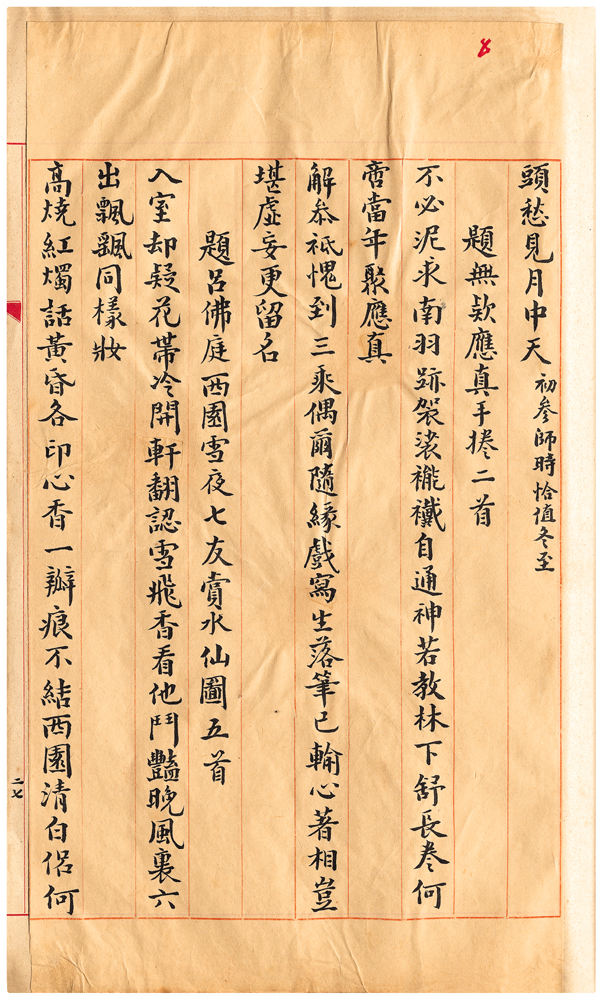 8
頭愁見月中天 初參師時恰值冬至
題無款應真手捲二首
不必泥求南羽跡袈裟襹襶自通神若教林下舒長卷何
啻當年聚應真
解恭祇愧到三乘偶爾隨緣戲寫生落筆已輸心著相豈
堪虛妄更留名
題呂佛庭西園雪夜七友賞水仙圖五首
入室却疑花帶冷開軒翻認雪飛香看他鬥豔晚風裏六
出飄飄同樣妝
高燒紅燭話黃昏各印心香一瓣痕不結西園清白侶何
二七